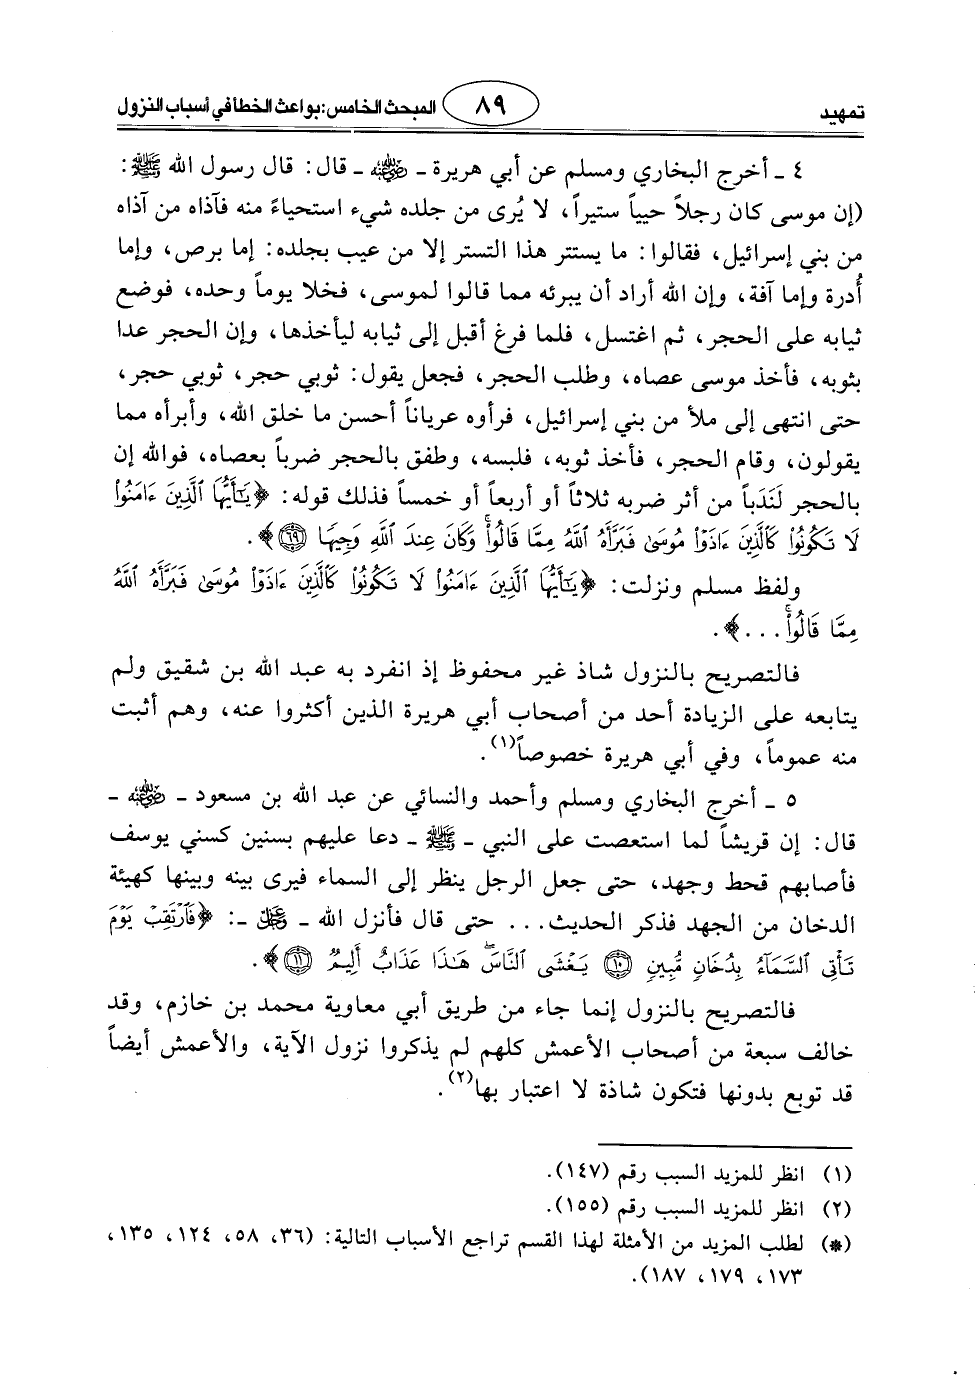 تمهيد ٨٩ المبحث الخامس: بواعث الخطأ في أسباب النزول
٤ ـ أخرج البخاري ومسلم عن أبي هريرة ـ رضي الله عنه ـ قال: قال رسول الله ﷺ:
(إن موسى كان رجلاً حيياً ستيراً، لا يُرى من جلده شيء استحياءً منه فآذاه من آذاه
من بني إسرائيل، فقالوا: ما يستتر هذا التستر إلا من عيب بجلده: إما برص، وإما
أُدرة وإما آفة، وإن الله أراد أن يبرئه مما قالوا لموسى، فخلا يوماً وحده، فوضع
ثيابه على الحجر، ثم اغتسل، فلما فرغ أقبل إلى ثيابه ليأخذها، وإن الحجر عدا
بثوبه، فأخذ موسى عصاه، وطلب الحجر، فجعل يقول: ثوبي حجر، ثوبي حجر،
حتى انتهى إلى ملأ من بني إسرائيل، فرأوه عرياناً أحسن ما خلق الله، وأبرأه مما
يقولون، وقام الحجر، فأخذ ثوبه، فلبسه، وطفق بالحجر ضرباً بعصاه، فوالله إن
بالحجر لَنَدَباً من أثر ضربه ثلاثاً أو أربعاً أو خمساً فذلك قوله: ﴿يَٰٓأَيُّهَا ٱلَّذِينَ ءَامَنُوا۟
لَا تَكُونُوا۟ كَٱلَّذِينَ ءَاذَوْا۟ مُوسَىٰ فَبَرَّأَهُ ٱللَّهُ مِمَّا قَالُوا۟ۚ وَكَانَ عِندَ ٱللَّهِ وَجِيهًا ٦٩﴾.
ولفظ مسلم ونزلت: ﴿يَٰٓأَيُّهَا ٱلَّذِينَ ءَامَنُوا۟ لَا تَكُونُوا۟ كَٱلَّذِينَ ءَاذَوْا۟ مُوسَىٰ فَبَرَّأَهُ ٱللَّهُ
مِمَّا قَالُوا۟ۚ ...﴾.
فالتصريح بالنزول شاذ غير محفوظ إذ انفرد به عبد الله بن شقيق ولم
يتابعه على الزيادة أحد من أصحاب أبي هريرة الذين أكثروا عنه، وهم أثبت
منه عموماً، وفي أبي هريرة خصوصاً(١).
٥ ـ أخرج البخاري ومسلم وأحمد والنسائي عن عبد الله بن مسعود ـ رضي الله عنه ـ
قال: إن قريشاً لما استعصت على النبي ـ ﷺ ـ دعا عليهم بسنين كسني يوسف
فأصابهم قحط وجهد، حتى جعل الرجل ينظر إلى السماء فيرى بينه وبينها كهيئة
الدخان من الجهد فذكر الحديث... حتى قال فأنزل الله ـ عز وجل ـ: ﴿فَٱرْتَقِبْ يَوْمَ
تَأْتِى ٱلسَّمَآءُ بِدُخَانٍ مُّبِينٍ ١٠ يَغْشَى ٱلنَّاسَۖ هَٰذَا عَذَابٌ أَلِيمٌ ١١﴾.
فالتصريح بالنزول إنما جاء من طريق أبي معاوية محمد بن خازم، وقد
خالف سبعة من أصحاب الأعمش كلهم لم يذكروا نزول الآية، والأعمش أيضاً
قد توبع بدونها فتكون شاذة لا اعتبار بها(٢).
(١) انظر للمزيد السبب رقم (١٤٧).
(٢) انظر للمزيد السبب رقم (١٥٥).
(*) لطلب المزيد من الأمثلة لهذا القسم تراجع الأسباب التالية: (٣٦، ٥٨، ١٢٤، ١٣٥،
١٧٣، ١٧٩، ١٨٧).